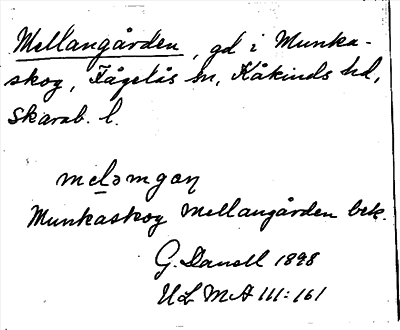 Mellangården, gd i Munka-
skog, Fågelås sn, Kåkinds hd,
Skarab. l.
meləmgaŋ
Munkaskog Mellangården bek.
G. Danell 1898
ULMA 111:161